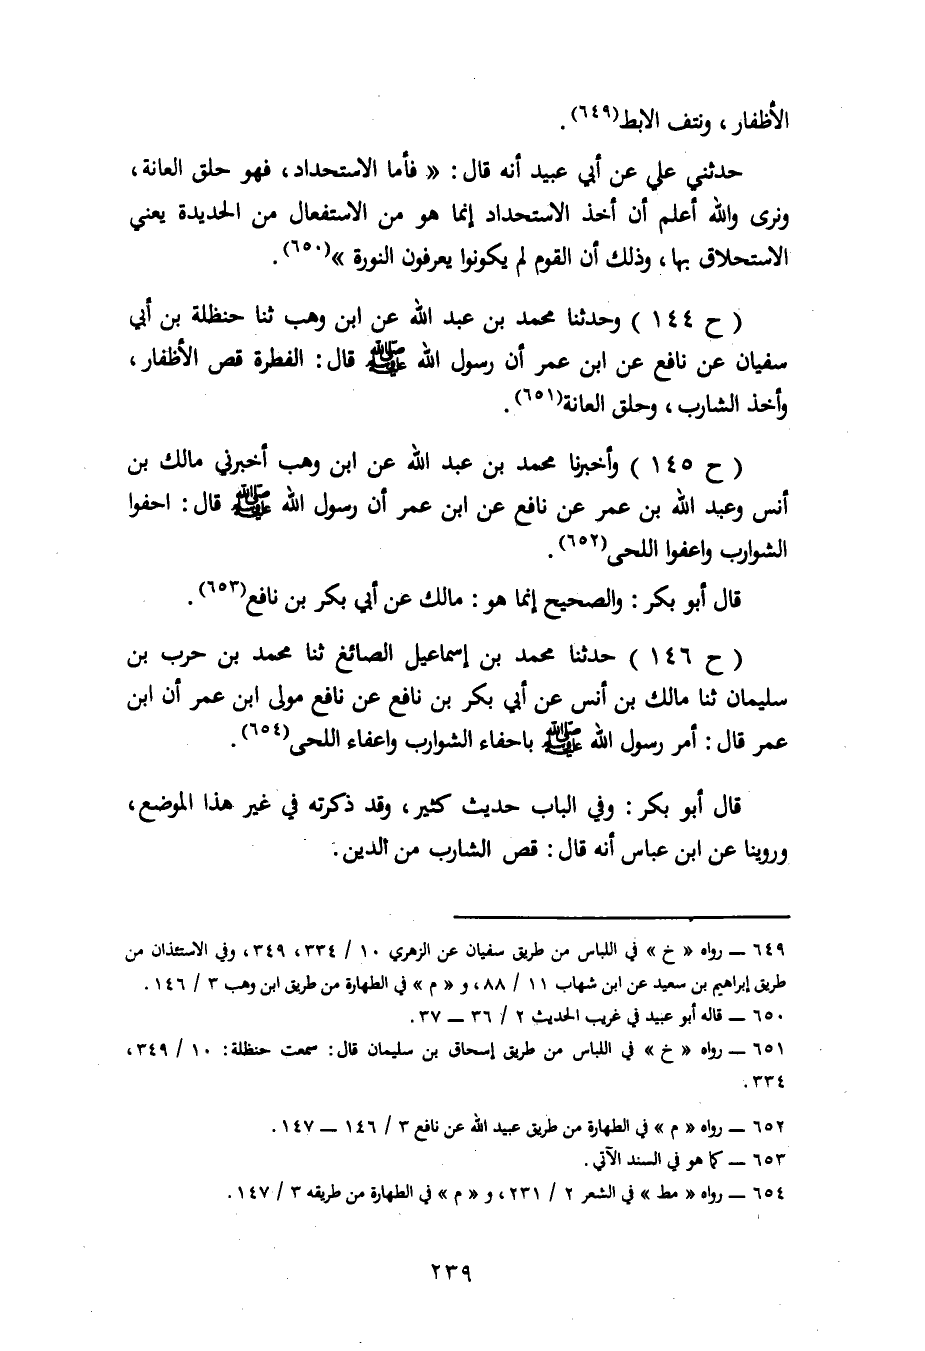 الأظفار ، ونتف الابط(٦٤٩) .
حدثني علي عن أبي عبيد أنه قال : « فأما الاستحداد ، فهو حلق العانة ،
ونرى والله أعلم أن أخذ الاستحداد إنما هو من الاستفعال من الحديدة يعني
الاستحلاق بها ، وذلك أن القوم لم يكونوا يعرفون النورة »(٦٥٠) .
( ح ١٤٤ ) وحدثنا محمد بن عبد الله عن ابن وهب ثنا حنظلة بن أبي
سفيان عن نافع عن ابن عمر أن رسول الله ﷺ قال : الفطرة قص الأظفار ،
وأخذ الشارب ، وحلق العانة(٦٥١) .
( ح ١٤٥ ) وأخبرنا محمد بن عبد الله عن ابن وهب أخبرني مالك بن
أنس وعبد الله بن عمر عن نافع عن ابن عمر أن رسول الله ﷺ قال : احفوا
الشوارب واعفوا اللحى(٦٥٢) .
قال أبو بكر : والصحيح إنما هو : مالك عن أبي بكر بن نافع(٦٥٣) .
( ح ١٤٦ ) حدثنا محمد بن إسماعيل الصائغ ثنا محمد بن حرب بن
سليمان ثنا مالك بن أنس عن أبي بكر بن نافع عن نافع مولى ابن عمر أن ابن
عمر قال : أمر رسول الله ﷺ باحفاء الشوارب واعفاء اللحى(٦٥٤) .
قال أبو بكر : وفي الباب حديث كثير ، وقد ذكرته في غير هذا الموضع ،
وروينا عن ابن عباس أنه قال : قص الشارب من الدين .
٦٤٩ – رواه « خ » في اللباس من طريق سفيان عن الزهري ١٠ / ٣٣٤ ، ٣٤٩ ، وفي الاستئذان من
طريق إبراهيم بن سعيد عن ابن شهاب ١١ / ٨٨ ، و « م » في الطهارة من طريق ابن وهب ٣ / ١٤٦ .
٦٥٠ – قاله أبو عبيد في غريب الحديث ٢ / ٣٦ – ٣٧ .
٦٥١ – رواه « خ » في اللباس من طريق إسحاق بن سليمان قال : سمعت حنظلة : ١٠ / ٣٤٩ ،
٣٣٤ .
٦٥٢ – رواه « م » في الطهارة من طريق عبيد الله عن نافع ٣ / ١٤٦ – ١٤٧ .
٦٥٣ – كما هو في السند الآتي .
٦٥٤ – رواه « مط » في الشعر ٢ / ٢٣١ ، و « م » في الطهارة من طريقه ٣ / ١٤٧ .
٢٣٩